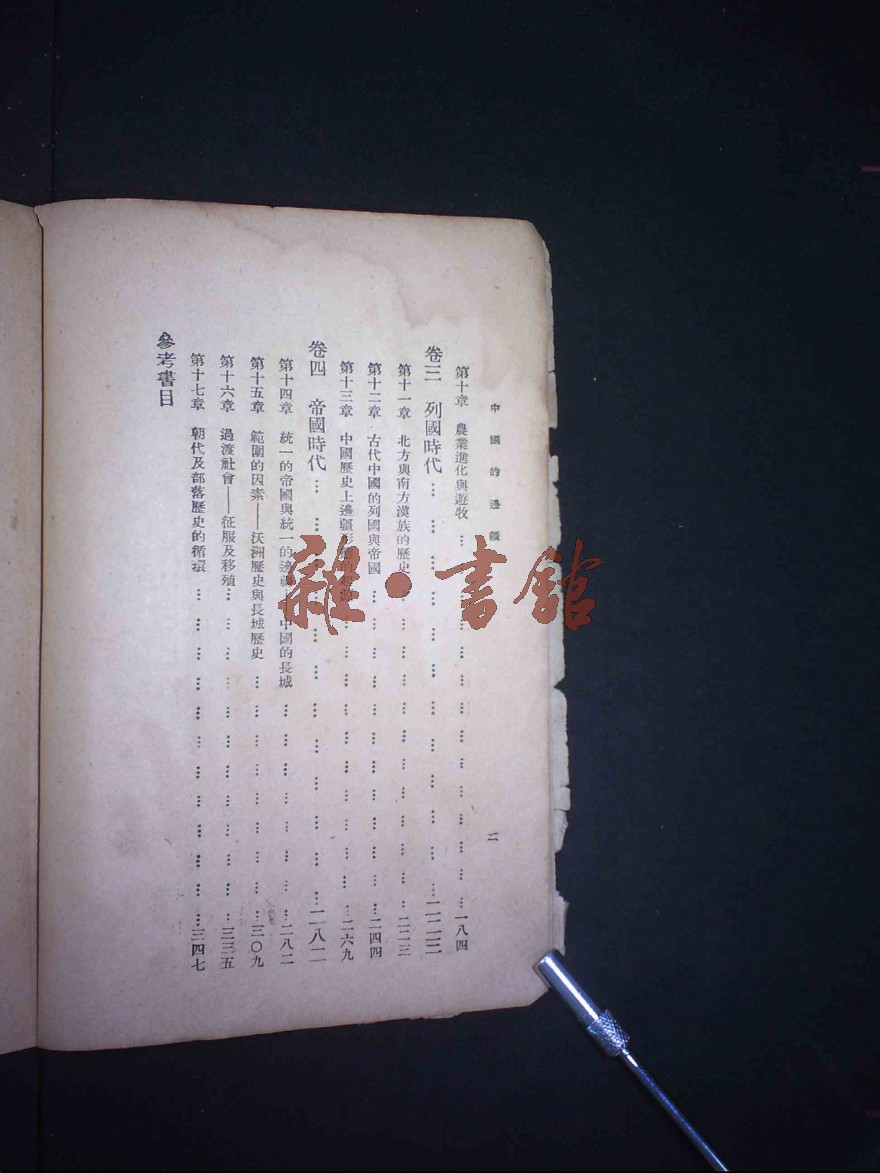 中國的邊疆 二
第十章 農業進化與遊牧 … … … … … … … … … … … … … … 一八四
卷三 列國時代 … … … … … … … … … … … … 二二三
第十一章 北方與南方漢族的歷史 … … … … … … … … … … … 二二三
第十二章 古代中國的列國與帝國 … … … … … … … … … … … … 二四四
第十三章 中國歷史上邊疆形態的起源 … … … … … … … … … … 二六九
卷四 帝國時代 … … … … … … … … … … … … 二八二
第十四章 統一的帝國與統一的邊疆——中國的長城 … … … … … … … … 二八二
第十五章 範圍的因素——沃洲歷史與長城歷史 … … … … … … … … … 三〇九
第十六章 過渡社會——征服及移殖 … … … … … … … … … … … … 三三五
第十七章 朝代及部落歷史的循環 … … … … … … … … … … … … 三四七
參考書目
雜·書館